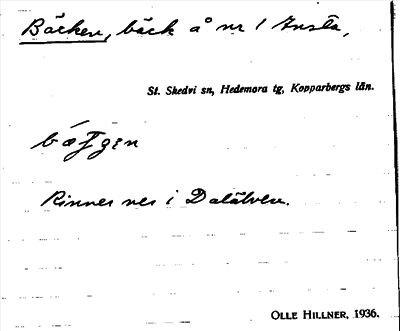 Bäcken, bäck å nr 1 Insta,
St. Skedvi sn, Hedemora tg, Kopparbergs län.
Rinner ner i Dalälven.
OLLE HILLNER, 1936.